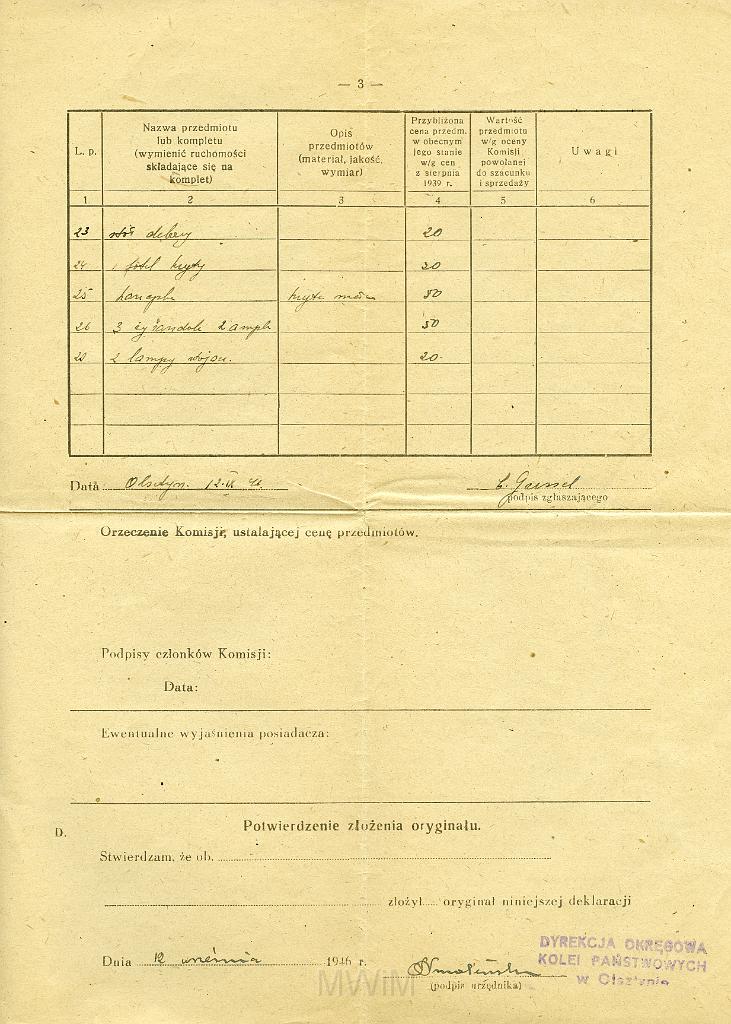 — 3 —
L. p.
Nazwa przedmiotu
lub kompletu
(wymienić ruchomości
składające się na
komplet)
Opis
przedmiotów
(materiał, jakość,
wymiar)
Przybliżona
cena przedm.
w obecnym
jego stanie
w/g cen
z sierpnia
1939 r.
Wartość
przedmiotu
w/g oceny
Komisji
powołanej
do szacunku
i sprzedaży
Uwagi
1 2 3 4 5 6
23 stół dębowy 20
24 1 fotel kryty 30
25 kanapka kryta 50
26 3 żyrandole 2 ample 50
2 lampy 20
Data Olsztyn. 12. 46
podpis zgłaszającego
Orzeczenie Komisji, ustalającej cenę przedmiotów.
Podpisy członków Komisji:
Data:
Ewentualne wyjaśnienia posiadacza:
D.
Potwierdzenie złożenia oryginału.
Stwierdzam, że ob.
złożył oryginał niniejszej deklaracji
Dnia 12 września 1946 r.
(podpis urzędnika)
DYREKCJA OKRĘGOWA
KOLEI PAŃSTWOWYCH
w Olsztynie
MWiM